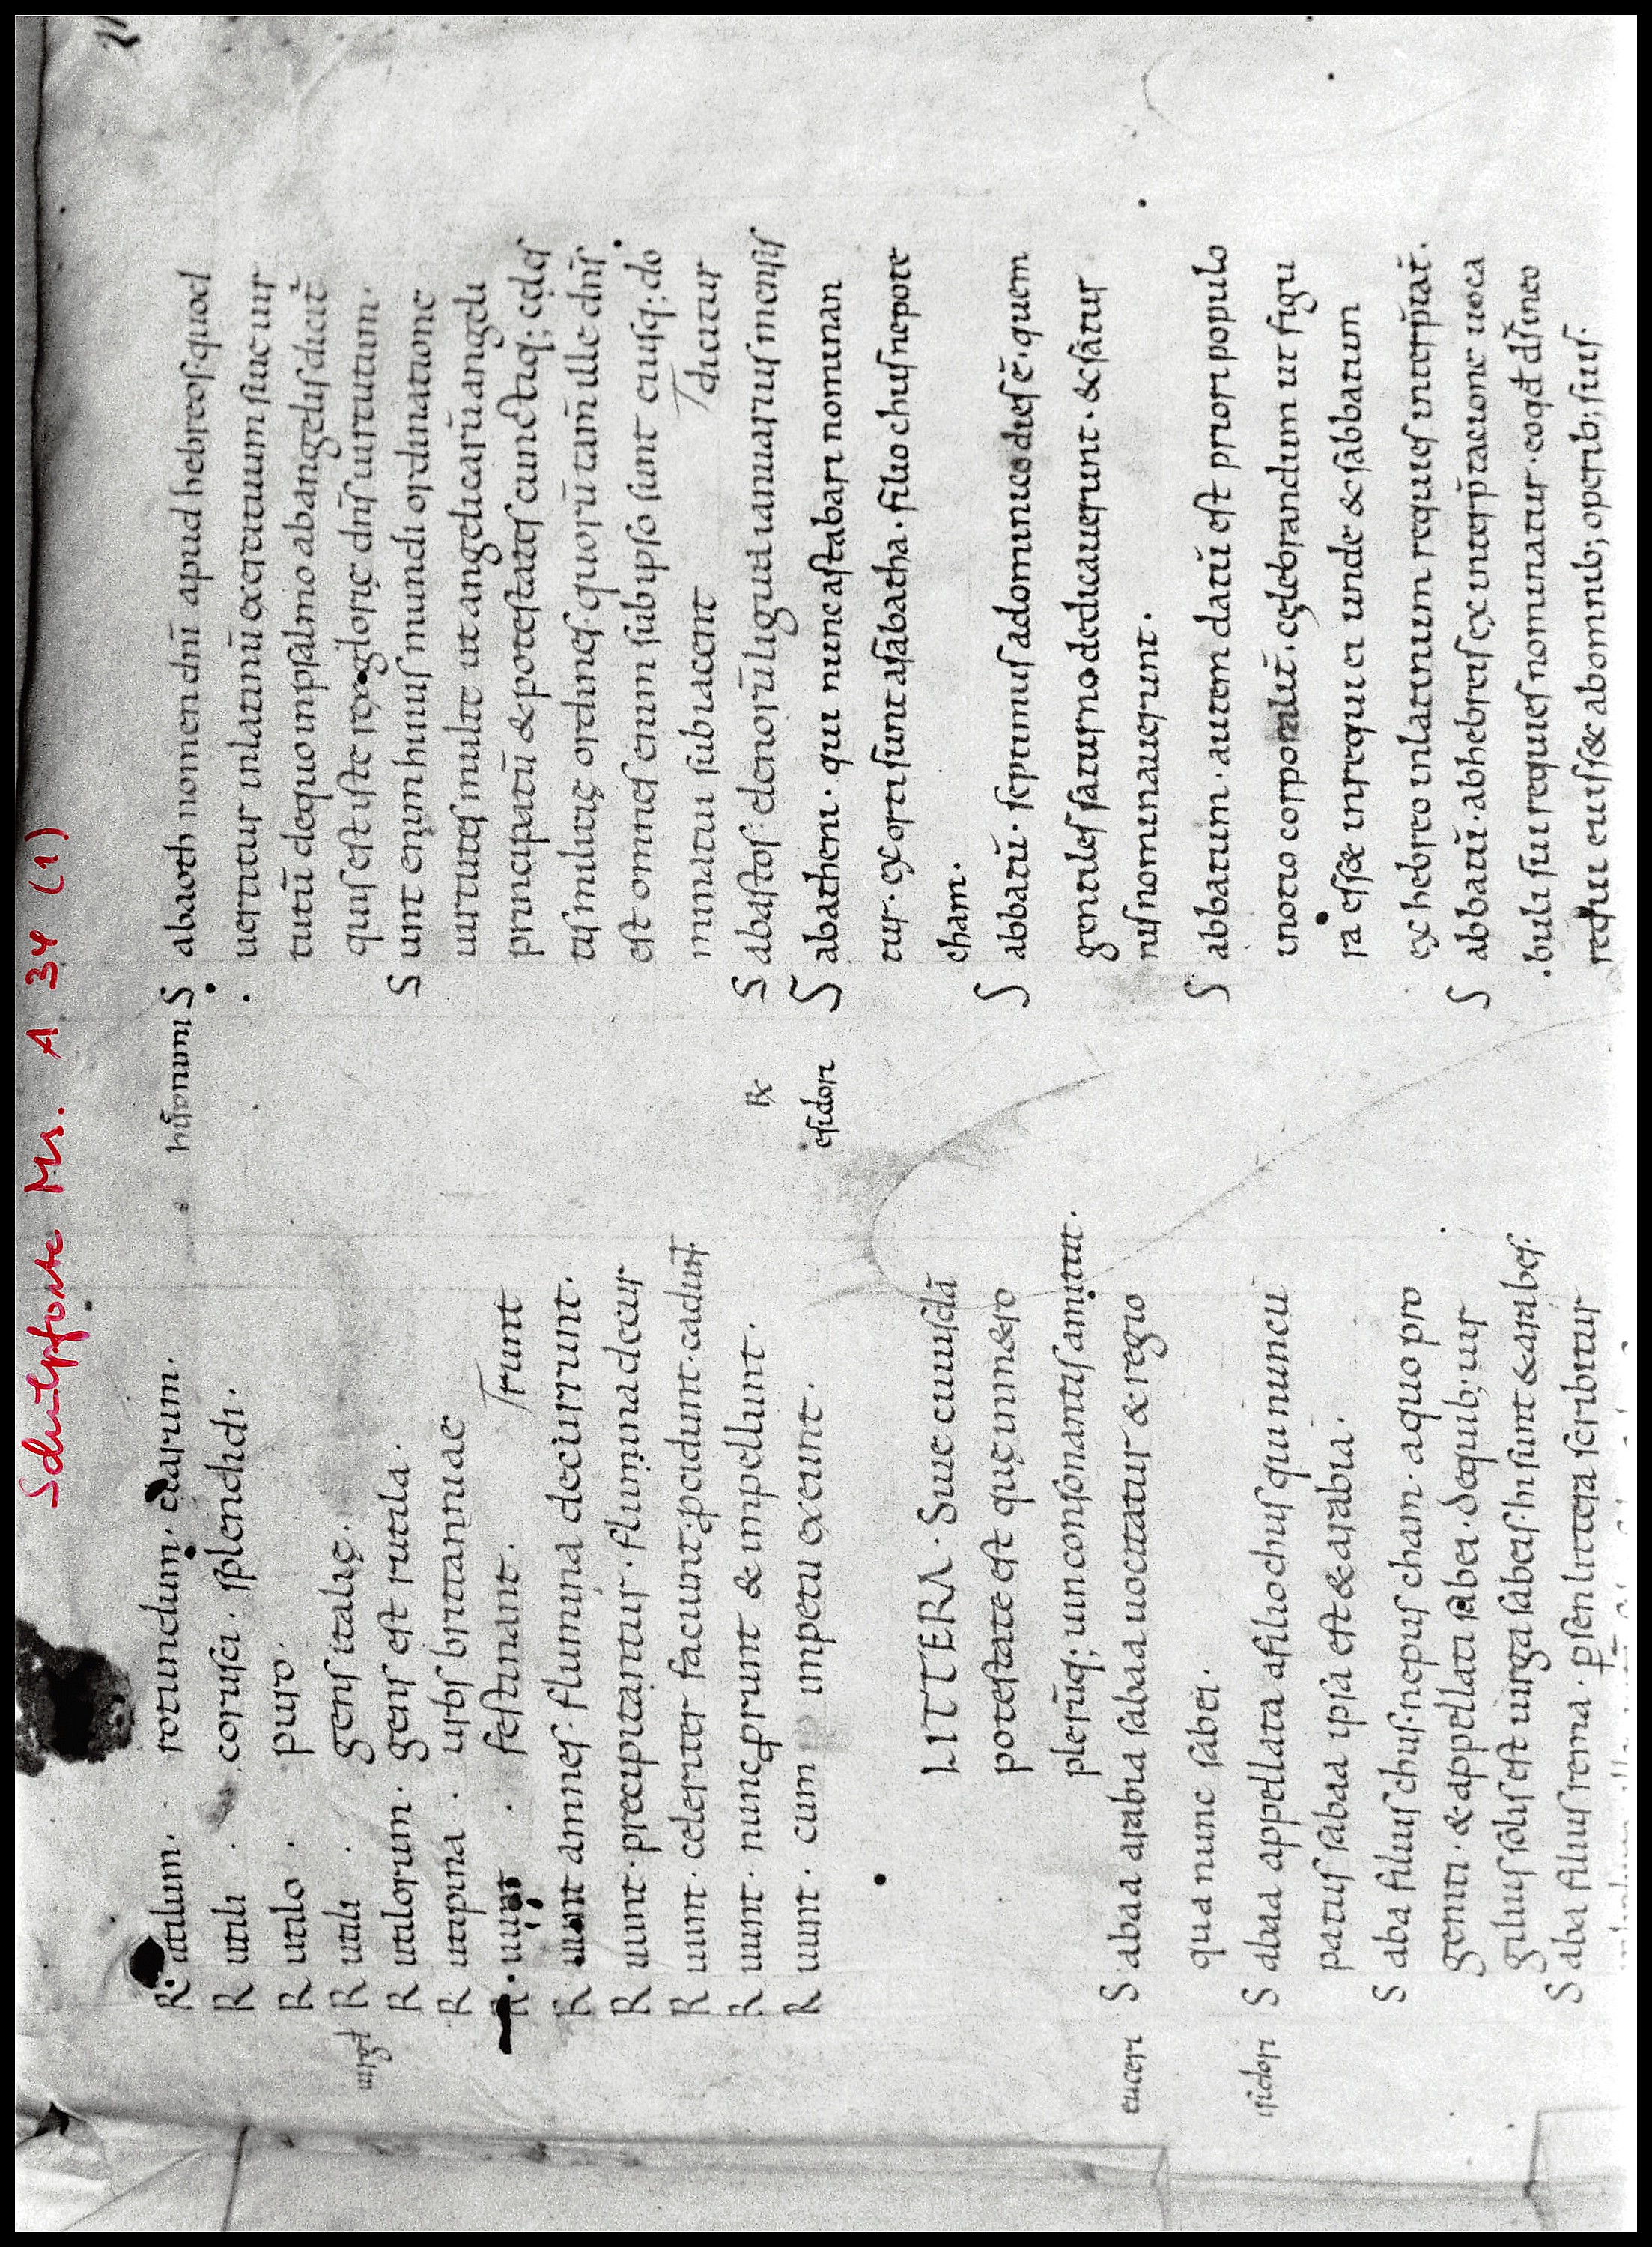 Schulpforte Ms. A 34 (1)
R utilum · rotundum · clarum.
R utili · corusci · splendidi ·
R utilo · puro ·
uirgł R utili · gens italię ·
R utilorum · gens est rutila ·
R utupina · urbs brittanniae
R uunt · festinant · runt
R uunt amnes · flumina decurrunt.
R uunt · precipitantur · flumina decur
R uunt · celeriter faciunt · ꝓcidunt · cadunt.
R uunt · nunc ꝓrunt & impellunt ·
R uunt · cum impetu exeunt ·
LITTERA · Siue cuiusdā
potestate est quę inmetro
plerūq; uim consonantis amittit ·
eucerii S abaa arabia sabaa uocitatur & regio
qua nunc sabei ·
isidori S abaa appellata afilio chus qui nuncu
patus sabaa ipsa est & arabia ·
S aba filius chus · nepus cham · aquo pro
geniti · & appellati sabei · dequib; uir
gilius solis est uirga sabeis · hi sunt & arabes.
S aba filius rema · ꝑsen littera scribitur
hiꝛonimi S abaoth nomen dñi apud hebreos · quod
uertitur inlatinū exercituum siue uir
tutū dequo inpsalmo abangelis dicit̄
quis est iste rex glorię dñs uirtutum ·
S unt enim huius mundi ordinatione
uirtutes multę ut angelicarū angeli
principatū & potestates cunctiq; cęles
tis militię ordines · quorū tam̄ ille dñs
est omnes enim sub ipso sunt eiusq; do
minatui subiacent dicitur
R S abastos · demorū liguti ianuarius mensis
esidori S abatheni · qui nunc astabari nominan
tur · exorti sunt asabatha · filio chus nepote
cham ·
S abbatū · septimus adominico dies ē · quem
gentiles saturno dedicauerunt · & sātur
nis nominauerunt ·
S abbatum · autem datū est priori populo
inotio corporalit̄ · cęlebrandum ut figu
ra esset inrequiei unde & sabbatum
ex hebreo inlatinum requies interp̄tat̄ ·
S abbatū · abhebreis ex interp̄tacione uoca
buli sui requies nominatur · eoqđ dš ineo
requieuisset abomnib; operib; suis ·